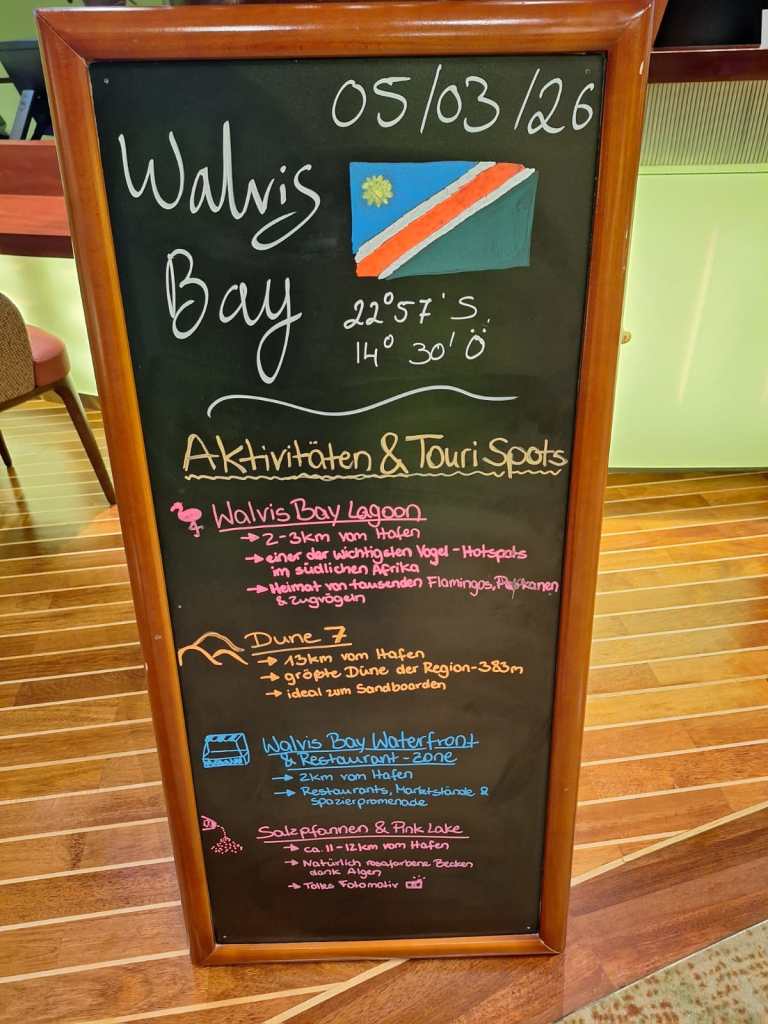 05/03/26
Walvis
Bay
22°57' S
14° 30' Ö
Aktivitäten & Touri Spots
Walvis Bay Lagoon
→ 2-3km vom Hafen
→ einer der wichtigsten Vogel-Hotspots
im südlichen Afrika
→ Heimat von tausenden Flamingos, Pelikanen
& Zugvögeln
Dune 7
→ 13km vom Hafen
→ größte Düne der Region - 383m
→ ideal zum Sandboarden
Walvis Bay Waterfront
& Restaurant-Zone
→ 2km vom Hafen
→ Restaurants, Marktstände &
Spazierpromenade
Salzpfannen & Pink Lake
→ ca. 11-12km vom Hafen
→ Natürlich rosafarbene Becken
dank Algen
→ Tolles Fotomotiv